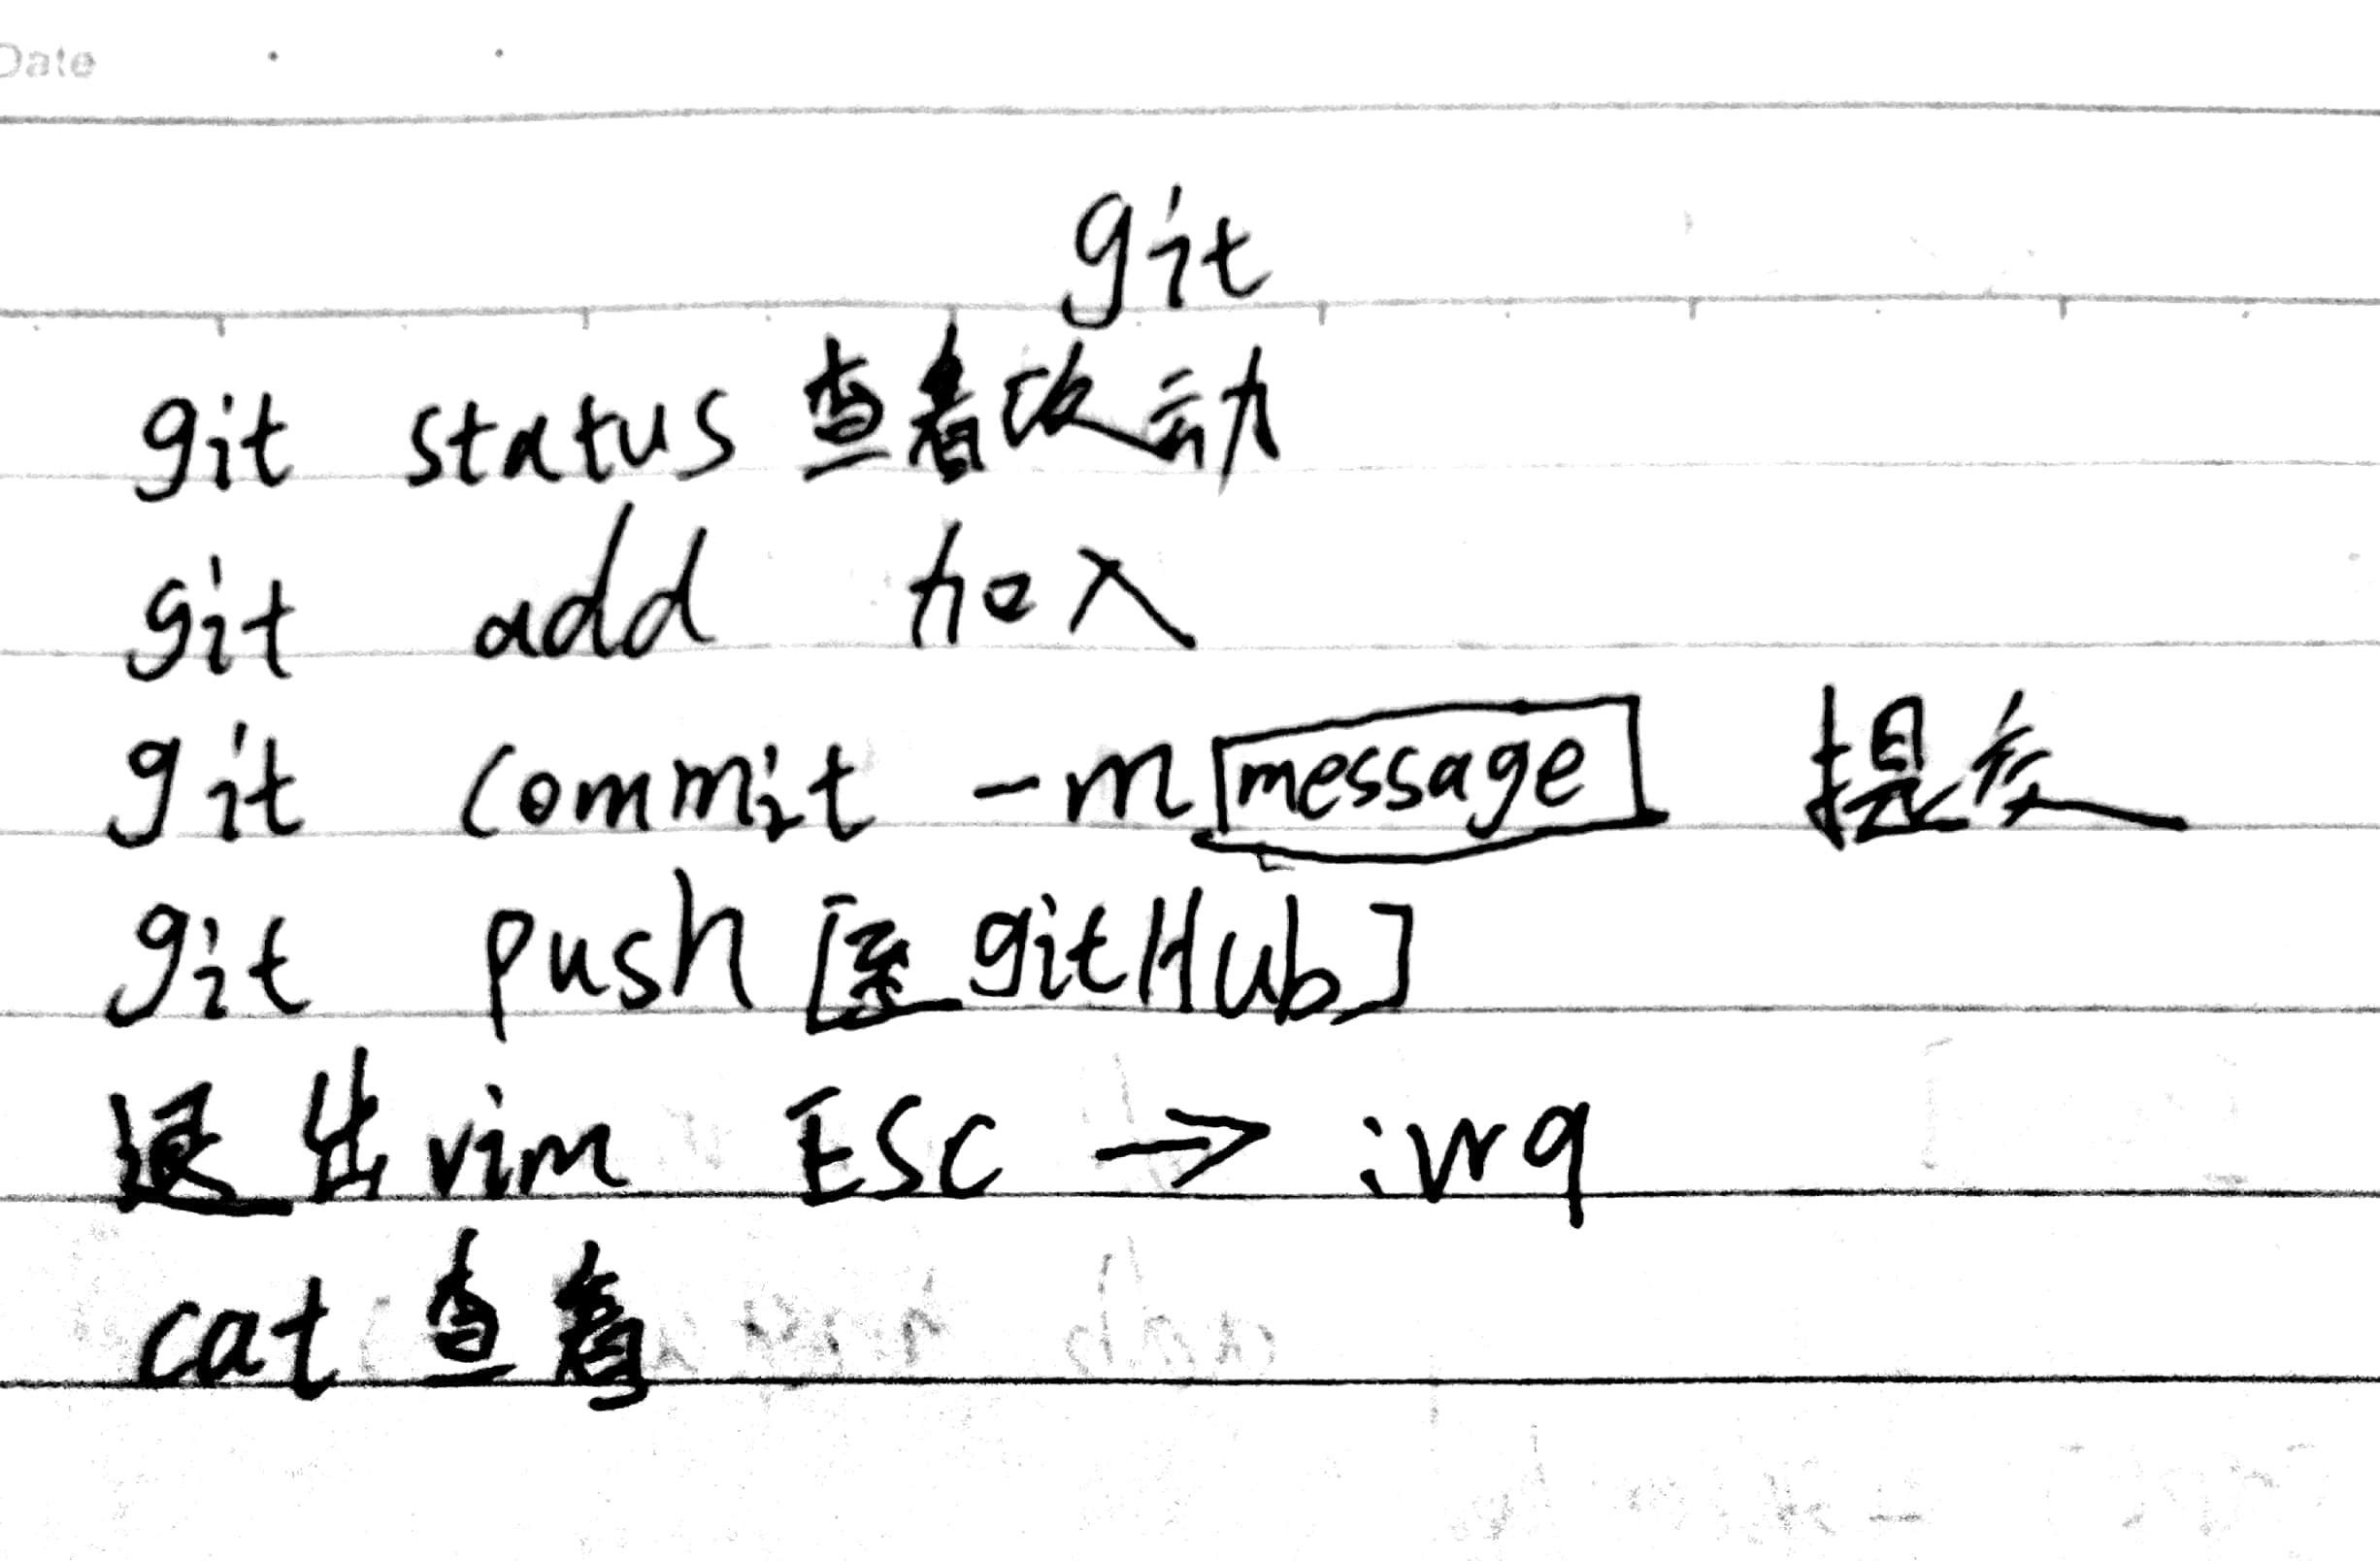 Date
git
git status 查看改动
git add 加入
git commit -m message 提交
git push [至 gitHub]
退出vim ESC → :wq
cat 查看